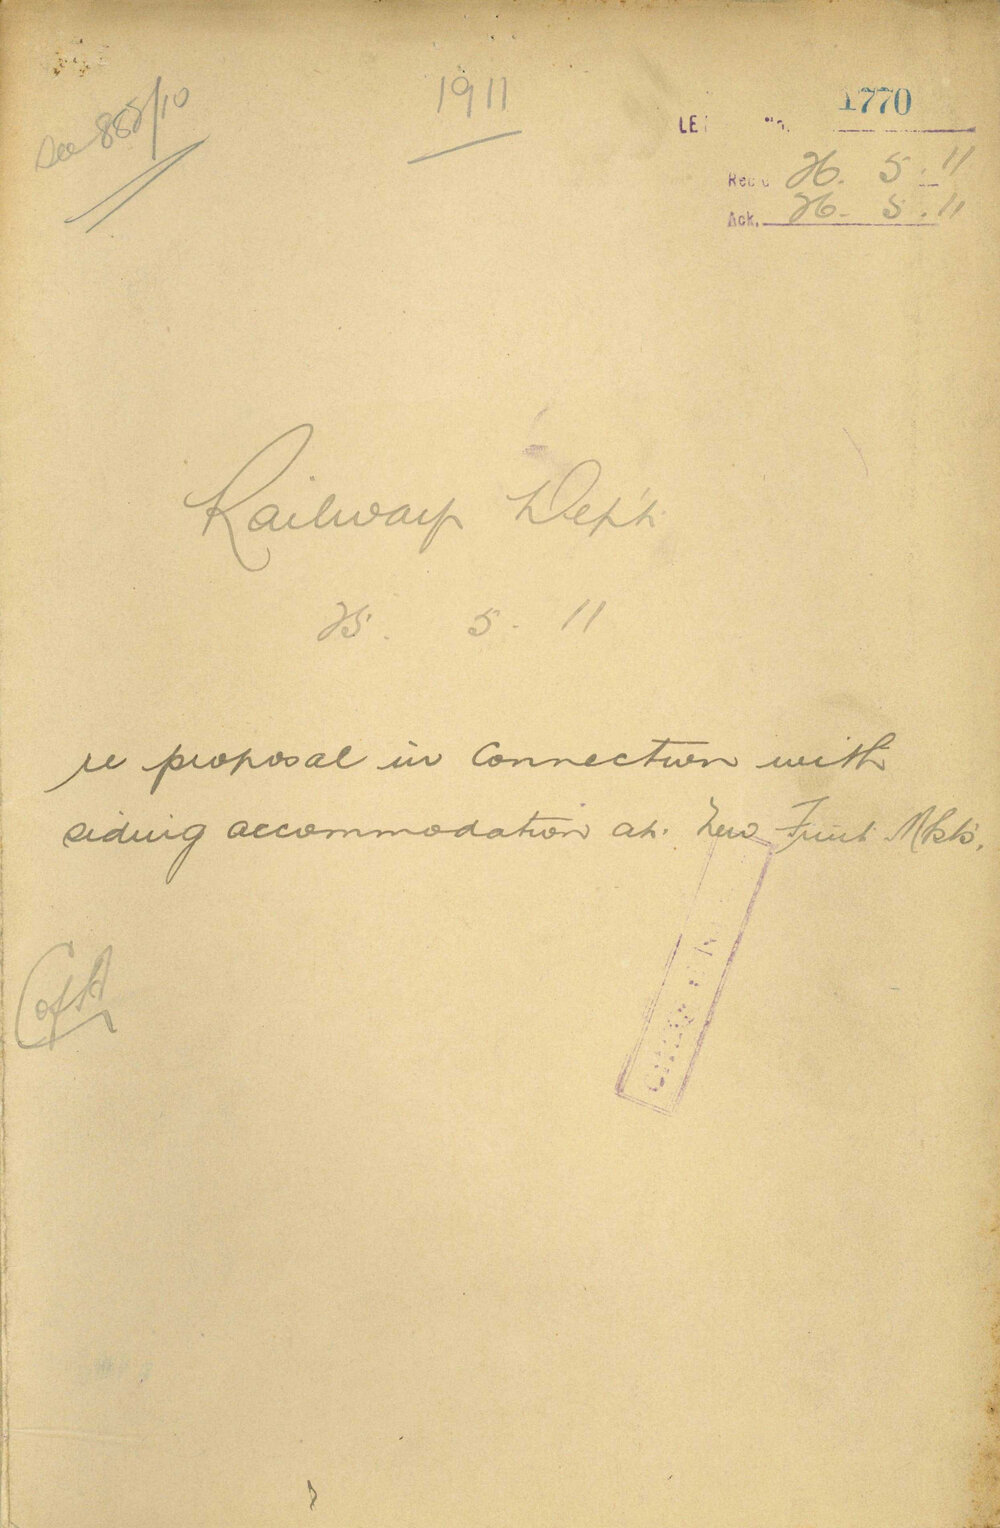 See 888/10
1911
1770
Rec'd 26. 5. 11
Ack. 26. 5. 11
Railway Dep't.
25. 5. 11
re proposal in connection with
siding accommodation at. New Fruit Mkts.
C of H